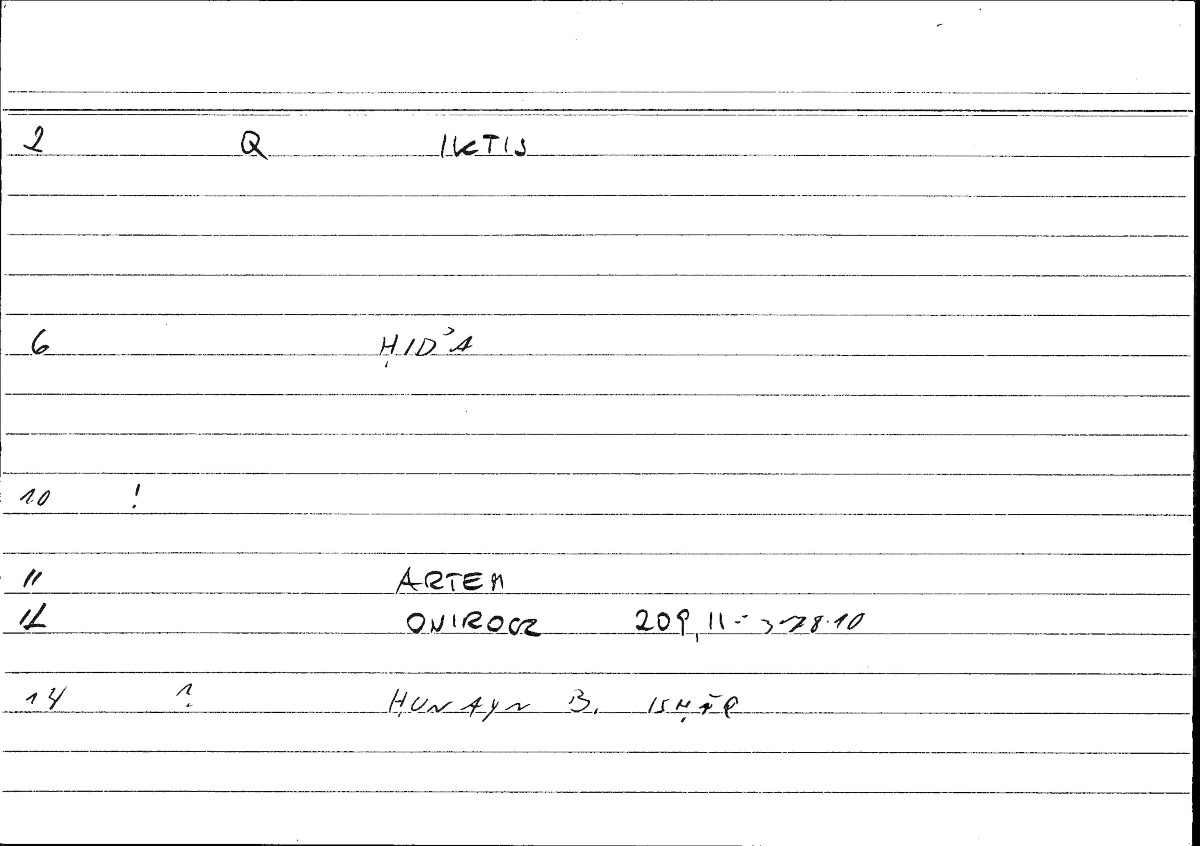 2 Q IKTIS
6 ḤIDʾA
10 !
11 ARTEM
12 ONIROCR 209,11
14 ? ḤUNAYN B. ISḤĀQ